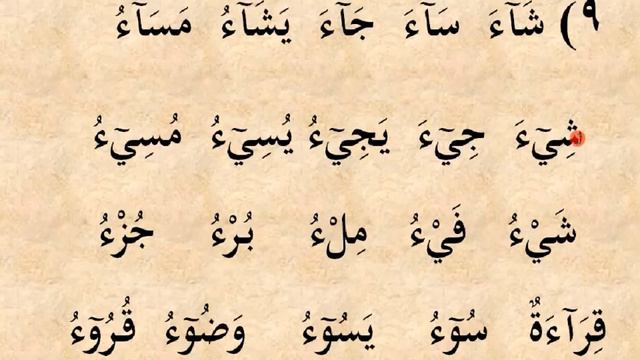 ٩) شَآءَ سَآءَ جَآءَ يَشَآءُ مَسَآءُ
شِيٓءَ جِيٓءَ يَجِيٓءُ يُسِيٓءُ مُسِيٓءُ
شَيْءُ فَيْءُ مِلْءُ بُرْءُ جُزْءُ
قِرَآءَةٌ سُوٓءُ يَسُوٓءُ وَضُوٓءُ قُرُوٓءُ